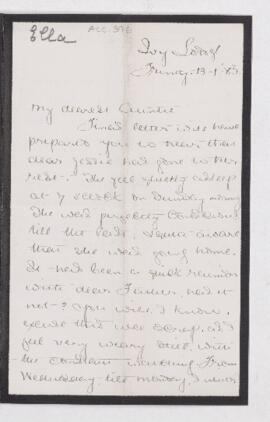 Ella
ACC. 396
Ivy Lodge
13-1-85
My dearest Auntie
letter will have
prepared you to hear that
dear Jessie had gone to her
rest. She fell quietly asleep
at 7 o'clock on Sunday
She was perfectly conscious
till the last, & quite aware
that she was going home.
It has been a quick reunion
with dear Father, had it
not? You will, I know,
excuse this wee scrap, as I
feel very weary still, with
the constant watching. From
Wednesday, till Monday, I never